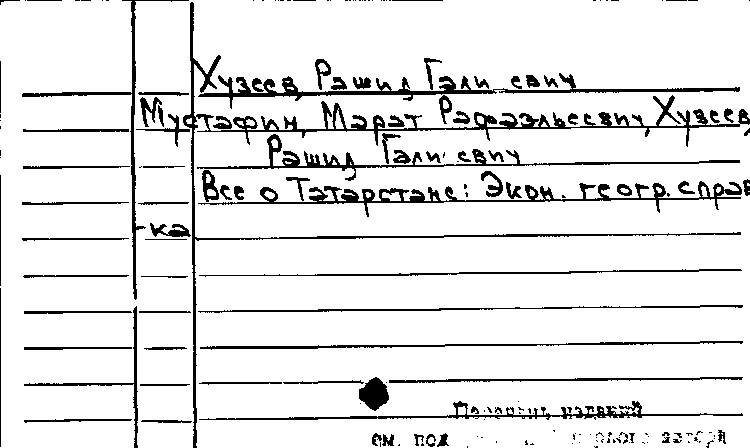 Хузеев, Рашид Галиевич
Мустафин, Марат Рафаэльевич, Хузеев,
Рашид Галиевич
Все о Татарстане: Экон. геогр. справ
-ка
Перечень изданий
см. под первого автора